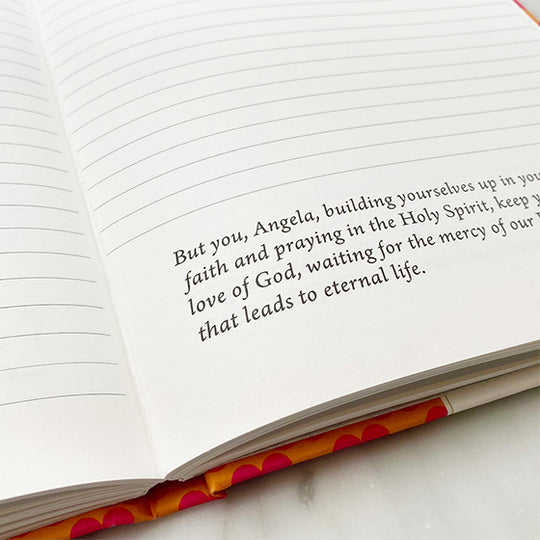 But you, Angela, building yourselves up in
faith and praying in the Holy Spirit, keep
love of God, waiting for the mercy of our
that leads to eternal life.